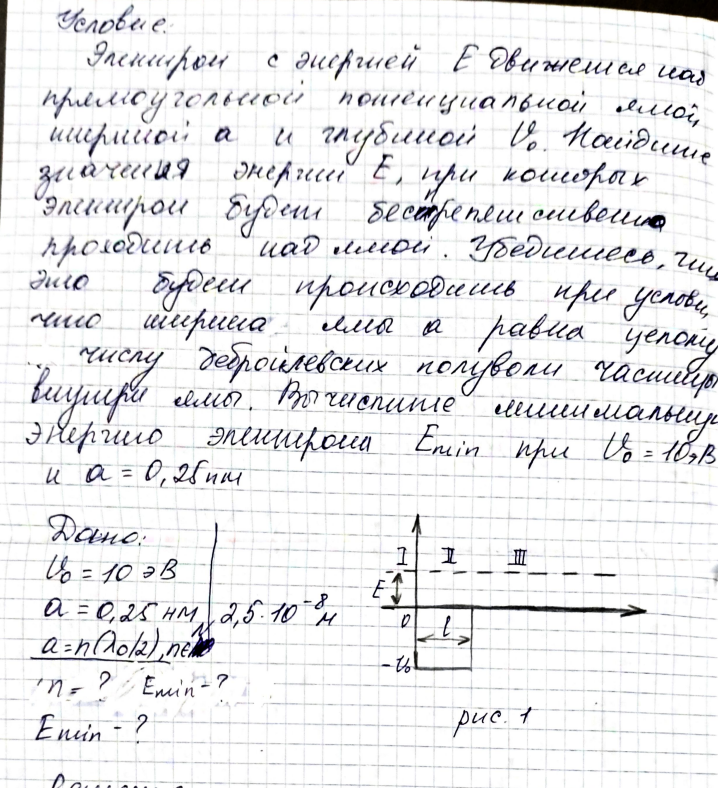 Условие:
Электрон с энергией E движется над
прямоугольной потенциальной ямой,
шириной a и глубиной U₀. Найдите
значения энергии E, при которых
электрон будет беспрепятственно
проходить над ямой. Убедитесь, что
это будет происходить при услови,
что ширина ямы a равна целому
числу дебройлевских полуволн частицы
внутри ямы. Вычислите минимальную
энергию электрона Emin при U₀ = 10 эВ
и a = 0,25 нм
Дано:
U₀ = 10 эВ
a = 0,25 нм 2,5·10⁻⁸ м
a = n(λ0/2), n∈N
n = ? Emin - ?
Emin - ?
I II III
E
0 l
-U₀
рис. 1